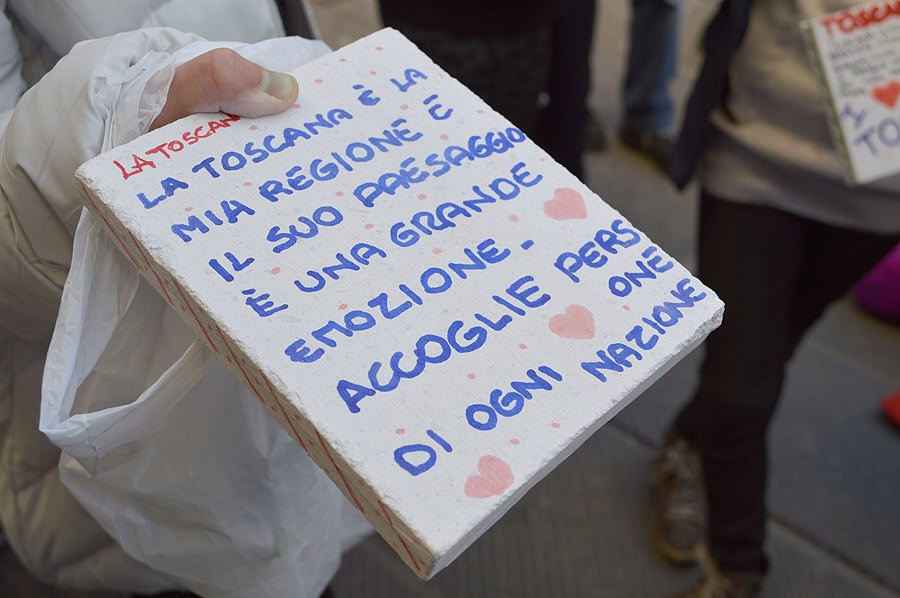 LA TOSCAN
LA TOSCANA È LA
MIA REGIONE E
IL SUO PAESAGGIO
È UNA GRANDE
EMOZIONE.
ACCOGLIE PERS
ONE
DI OGNI NAZIONE
TOSCAN
TO